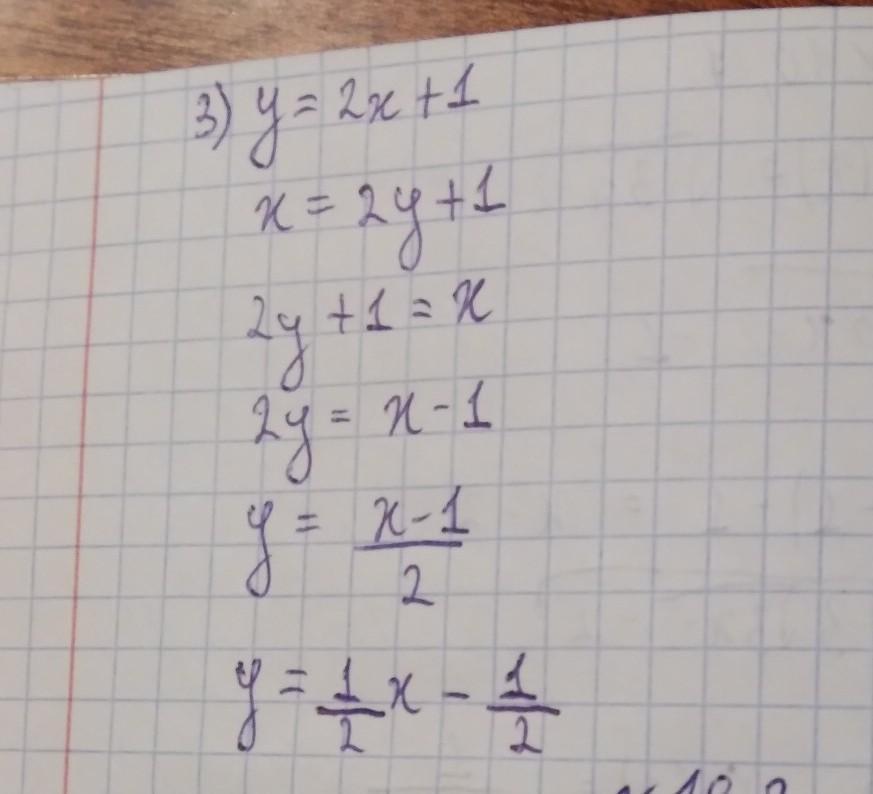 3) y = 2x + 1
x = 2y + 1
2y + 1 = x
2y = x - 1
y = \frac{x-1}{2}
y = \frac{1}{2}x - \frac{1}{2}